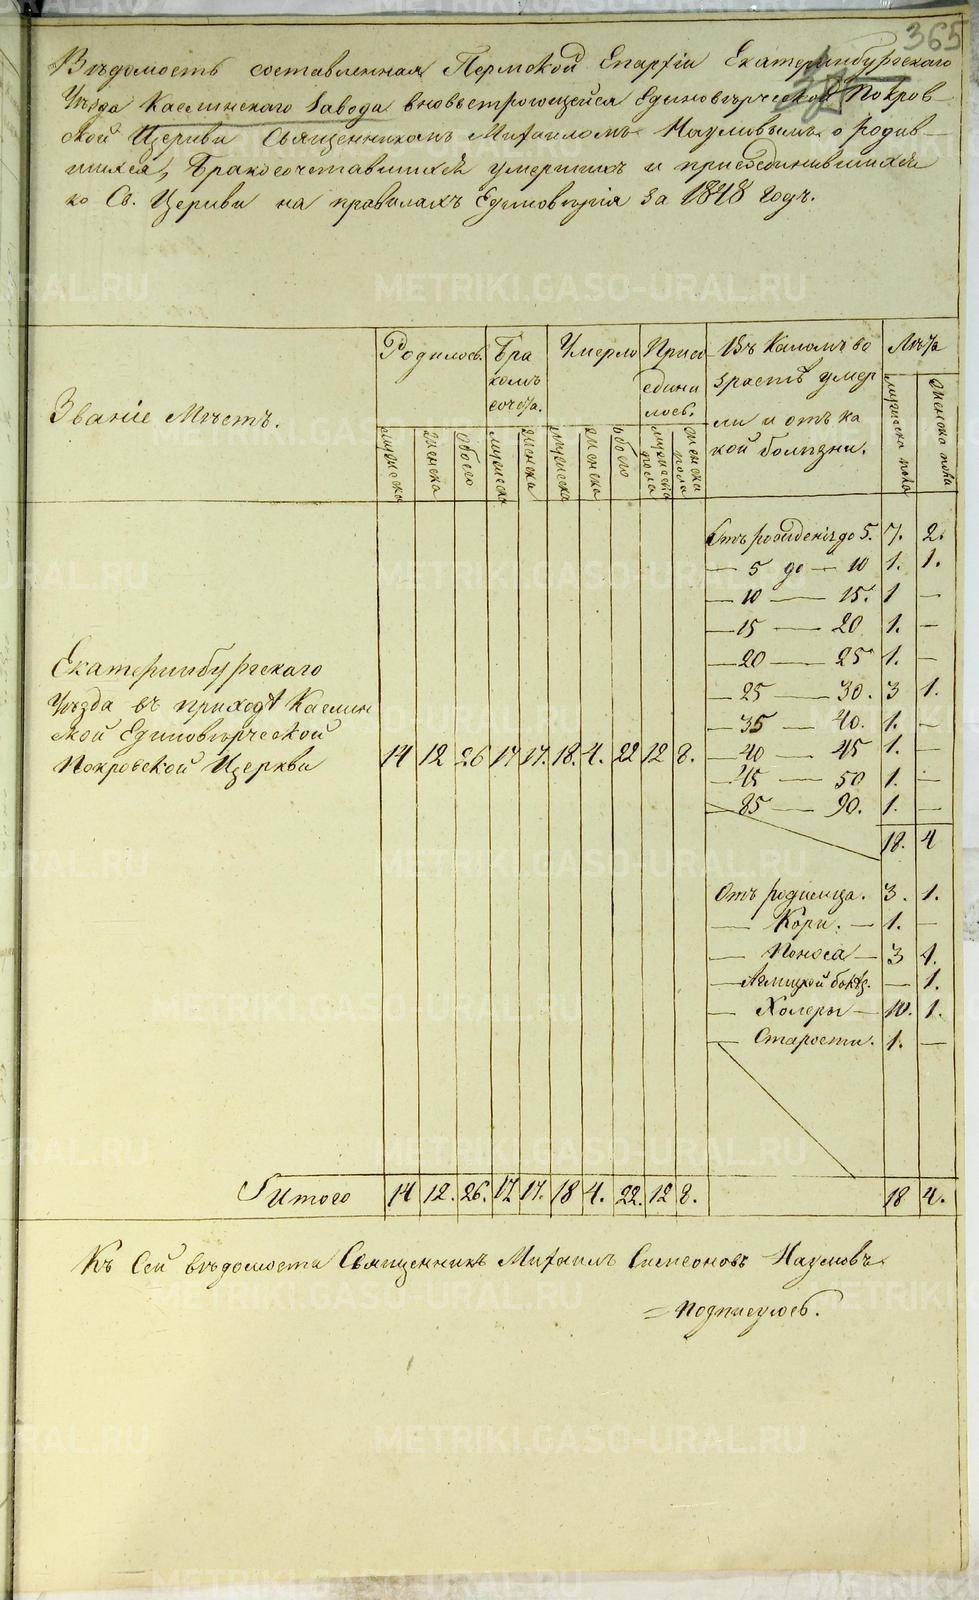 365
Вѣдомость составленная Пермской Епархіи Екатеринбургскаго
Уѣзда Каслинскаго Завода вновьстроющейся Единовѣрческой Покров-
ской Церкви Священникомъ Михаиломъ Наумовымъ о родив-
шихся, Бракосочетавшихся умершихъ и присоединившихся
ко Св. Церкви на правилахъ Единовѣрія за 1848 годъ.
Званіе Мѣстъ. Родилось. Бракомъ сочета. Умерло Присоединилось. Въ Какомъ возрастѣ умерли и отъ какой болѣзни. Лѣта
мужеска женска обоего мужеска женска мужеска женска обоего мужеска пола женска пола мужеска пола женска пола
Отъ рожденія до 5. 7. 2.
— 5 до — 10 1. 1.
— 10 — 15. 1 —
— 15 — 20 1. —
— 20 — 25 1. —
— 25 — 30. 3 1.
— 35 — 40. 1. —
— 40 — 45 1. —
— 45 — 50 1. —
— 85 — 90. 1. —
18. 4
Екатеринбургскаго
Уѣзда въ приходѣ Каслин
ской Единовѣрческой
Покровской Церкви 14 12 26 17 17. 18. 4. 22 12 8.
Отъ родимца. 3. 1.
— Кори. — 1. —
— Поноса — 3 1.
— — 1.
— Холеры — 10. 1.
— Старости. 1. —
Итого 14 12. 26. 17 17. 18 4. 22. 12 8. 18 4.
Къ Сей вѣдомости Священникъ Михаилъ Симеоновъ Наумовъ
= Подписуюсь.
METRIKI.GASO-URAL.RU